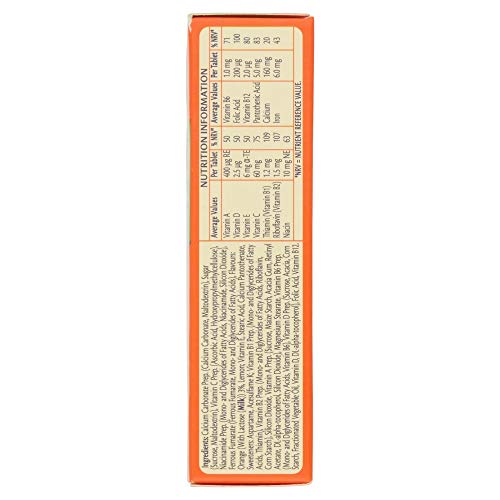 NUTRITION INFORMATION
Average Values Per Tablet % NRV* Average Values Per Tablet % NRV*
Vitamin A 400 µg RE 50 Vitamin B6 1.0 mg 71
Vitamin D 2.5 µg 50 Folic Acid 200 µg 100
Vitamin E 6 mg α-TE 50 Vitamin B12 2.0 µg 80
Vitamin C 60 mg 75 Pantothenic Acid 5.0 mg 83
Thiamin (Vitamin B1) 1.2 mg 109 Calcium 160 mg 20
Riboflavin (Vitamin B2) 1.5 mg 107 Iron 6.0 mg 43
Niacin 10 mg NE 63
*NRV = NUTRIENT REFERENCE VALUE.
Ingredients: Calcium Carbonate Prep. (Calcium Carbonate, Maltodextrin), Sugar
(Sucrose, Maltodextrin), Vitamin C Prep. (Ascorbic Acid, Hydroxypropylmethylcellulose),
Niacinamide Prep. (Mono- and Diglycerides of Fatty Acids, Niacinamide, Silicon Dioxide),
Ferrous Fumarate (Ferrous Fumarate, Mono- and Diglycerides of Fatty Acids), Flavours:
Orange (With Lactose (Milk)) 3%, Lemon; Vitamin E, Stearic Acid, Calcium Pantothenate,
Sweeteners: Aspartame, Acesulfame K, Vitamin B1 Prep. (Mono- and Diglycerides of Fatty
Acids, Thiamin), Vitamin B2 Prep. (Mono- and Diglycerides of Fatty Acids, Riboflavin,
Corn Starch), Silicon Dioxide, Vitamin A Prep. (Sucrose, Maize Starch, Acacia Gum, Retinyl
Acetate, DL-alpha-tocopherol, Silicon Dioxide), Magnesium Stearate, Vitamin B6 Prep.
(Mono- and Diglycerides of Fatty Acids, Vitamin B6), Vitamin D Prep. (Sucrose, Acacia, Corn
Starch, Fractionated Vegetable Oil, Vitamin D, DL-alpha-tocopherol), Folic Acid, Vitamin B12.